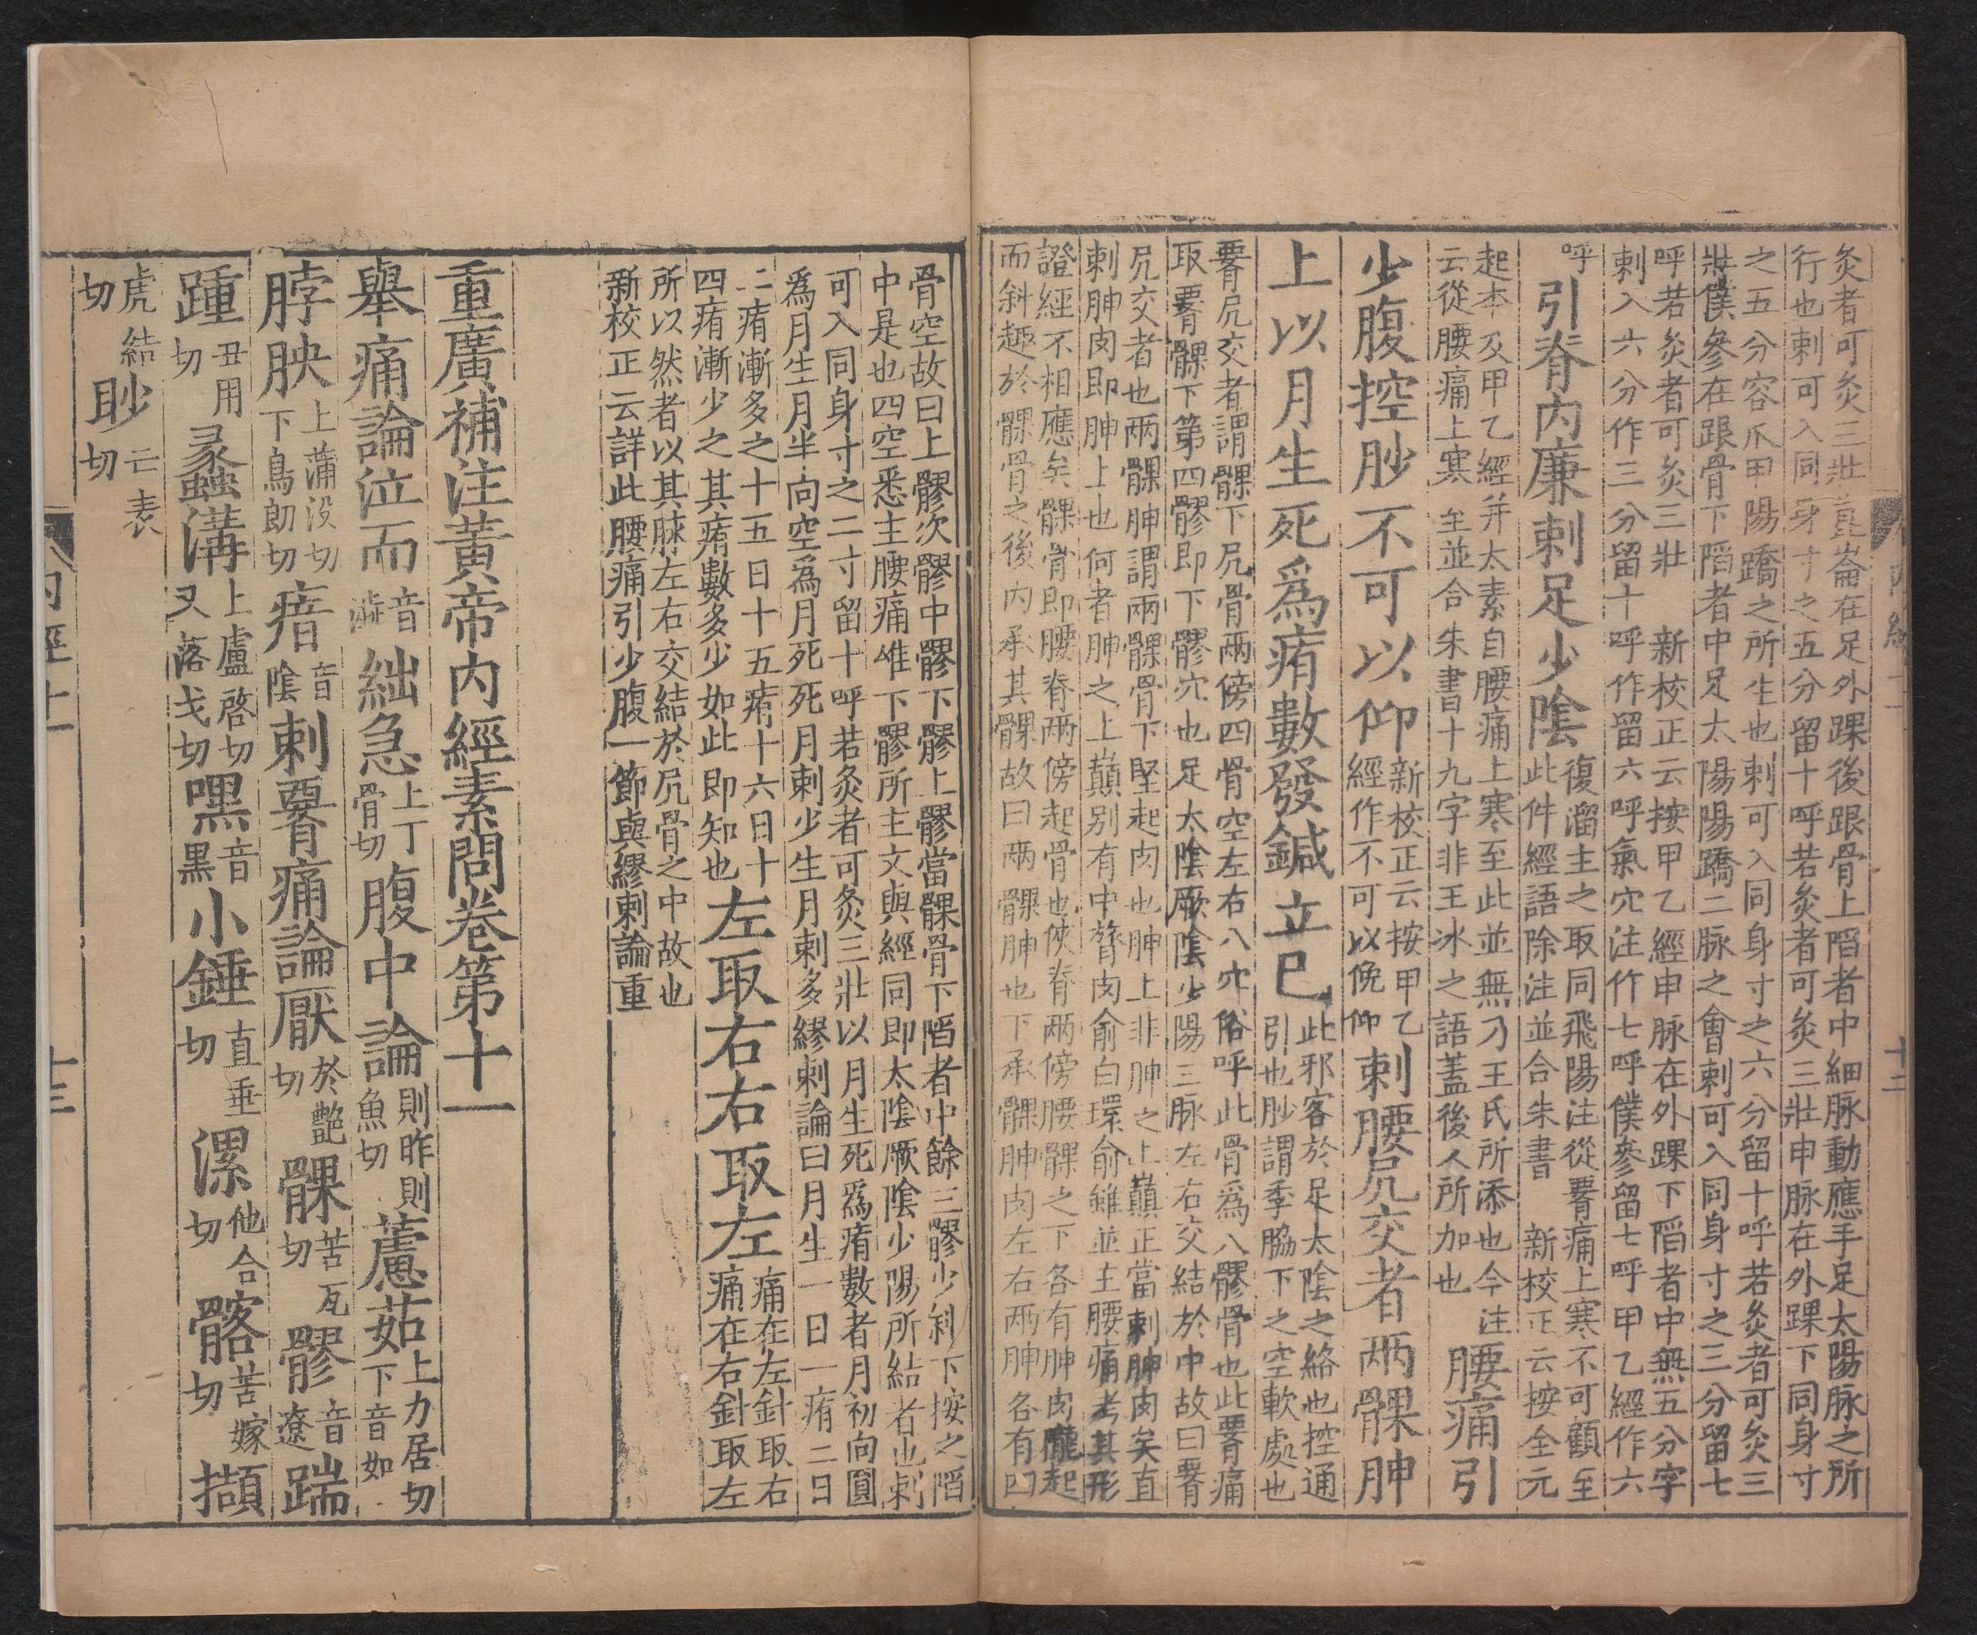 灸者可灸三壯崑崙在足外踝後跟骨上陷者中細脉動應手足太陽脉之所
行也刺可入同身寸之五分留十呼若灸者可灸三壯申脉在外踝下同身寸
之五分容爪甲陽蹻之所生也刺可入同身寸之六分留十呼若灸者可灸三
壯僕參在跟骨下陷者中足太陽陽蹻二脉之會刺可入同身寸之三分留七
呼若灸者可灸三壯 新校正云按甲乙經申脉在外踝下陷者中無五分字
刺入六分作三分留十呼作留六呼氣穴注作七呼僕參留七呼甲乙經作六
呼
引脊內廉刺足少陰
復溜主之取同飛陽注從腰痛上寒不可顧至
此件經語除注並合朱書 新校正云按全元
起本及甲乙經并太素自腰痛上寒至此並無乃王氏所添也今注
云從腰痛上寒至並合朱書十九字非王冰之語蓋後人所加也
腰痛引
少腹控䏚不可以仰
新校正云按甲乙
經作不可以俛仰
刺腰尻交者兩髁胂
上以月生死爲痏數發鍼立已
此邪客於足太陰之絡也控通
引也䏚謂季脇下之空軟處也
腰尻交者謂髁下尻骨兩傍四骨空左右八穴俗呼此骨爲八髎骨也此腰痛
取腰髁下第四髎即下髎穴也足太陰厥陰少陽三脉左右交結於中故曰腰
尻交者也兩髁胂謂兩髁骨下堅起肉也胂上非胂之上巔正當刺胂肉矣直
刺胂肉即胂上也何者胂之上巔別有中膂肉俞白環俞雖並主腰痛考其形
證經不相應矣髁骨即腰脊兩傍起骨也俠脊兩傍腰髁之下各有胂肉隴起
而斜趣於髁骨之後內承其髁故曰兩髁胂也下承髁胂肉左右兩胂各有四
骨空故曰上髎次髎中髎下髎上髎當髁骨下陷者中餘三髎少斜下按之陷
中是也四空悉主腰痛唯下髎所主文與經同即太陰厥陰少陽所結者也刺
可入同身寸之二寸留十呼若灸者可灸三壯以月生死爲痏數者月初向圓
爲月生月半向空爲月死死月刺少生月刺多繆刺論曰月生一日一痏二日
二痏漸多之十五日十五痏十六日十
四痏漸少之其痏數多少如此即知也
左取右右取左
痛在左針取右
痛在右針取左
所以然者以其脉左右交結於尻骨之中故也
新校正云詳此腰痛引少腹一節與繆刺論重
重廣補注黃帝內經素問卷第十一
舉痛論泣而音澁絀急上丁骨切腹中論則昨則魚切藘茹上力居切下音如
脖胦上蒲没切下烏朗切瘖音陰刺腰痛論厭於豔切髁苦瓦切髎音遼踹
踵丑用切蠡溝上盧啓切又落戈切嘿音黑小錘直垂切漯他合切髂苦嫁切擷
虎結切䏚亡表切
內經十一
十三
十二